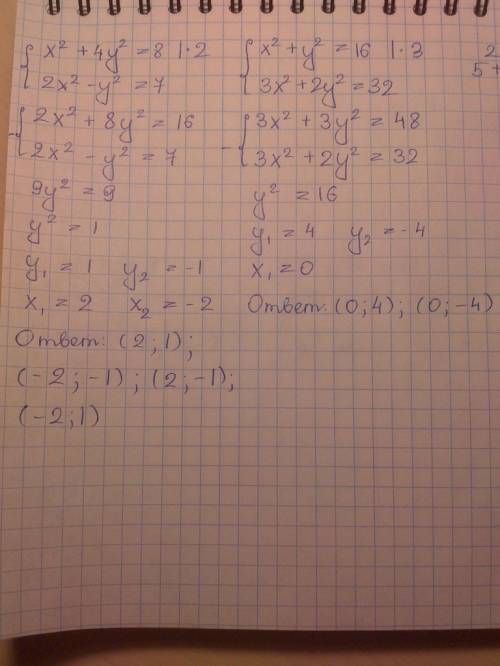 { x² + 4y² = 8 | · 2
2x² - y² = 7
- { 2x² + 8y² = 16
2x² - y² = 7
9y² = 9
y² = 1
y₁ = 1 y₂ = -1
x₁ = 2 x₂ = -2
Ответ: (2; 1);
(-2; -1); (2; -1);
(-2; 1)
{ x² + y² = 16 | · 3
3x² + 2y² = 32
- { 3x² + 3y² = 48
3x² + 2y² = 32
y² = 16
y₁ = 4 y₂ = -4
x₁ = 0
Ответ: (0; 4); (0; -4)
2
5 +